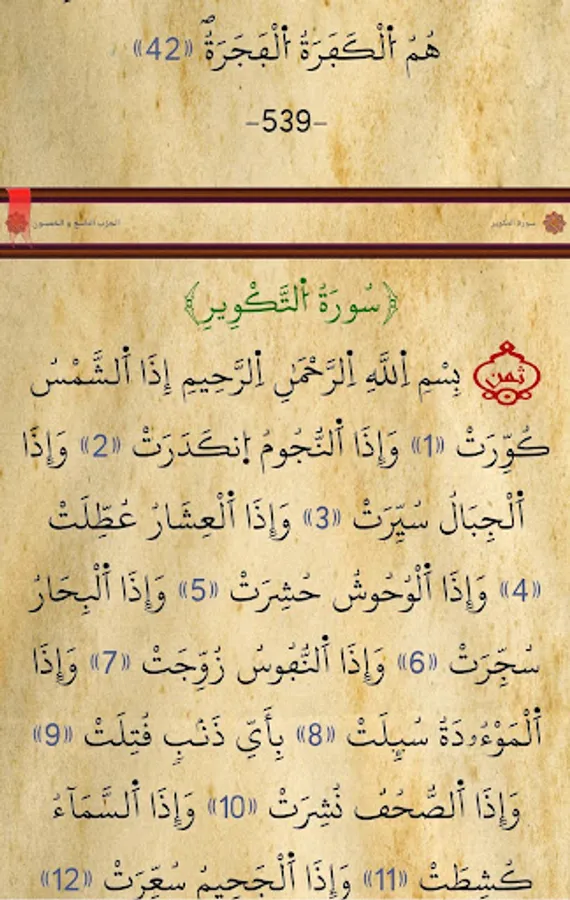 هُمُ اُ۬لْكَفَرَةُ اُ۬لْفَجَرَةُۖ «42»
-539-
سورة التكوير
الحزب التاسع و الخمسون
﴿سُورَةُ اُ۬لتَّكْوِيرِ﴾
ثمن
بِسْمِ اِ۬للَّهِ اِ۬لرَّحْمَٰنِ اِ۬لرَّحِيمِ إِذَا اَ۬لشَّمْسُ
كُوِّرَتْ «1» وَإِذَا اَ۬لنُّجُومُ اُ۪نكَدَرَتْ «2» وَإِذَا
اَ۬لْجِبَالُ سُيِّرَتْ «3» وَإِذَا اَ۬لْعِشَارُ عُطِّلَتْ
«4» وَإِذَا اَ۬لْوُحُوشُ حُشِرَتْ «5» وَإِذَا اَ۬لْبِحَارُ
سُجِّرَتْ «6» وَإِذَا اَ۬لنُّفُوسُ زُوِّجَتْ «7» وَإِذَا
اَ۬لْمَوْءُۥدَةُ سُئِلَتْ «8» بِأَيِّ ذَنۢبٖ قُتِلَتْ «9»
وَإِذَا اَ۬لصُّحُفُ نُشِرَتْ «10» وَإِذَا اَ۬لسَّمَآءُ
كُشِطَتْ «11» وَإِذَا اَ۬لْجَحِيمُ سُعِّرَتْ «12»